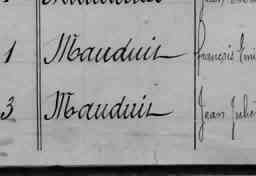 1 Mauduit François Emi
3 Mauduit Jean Julie